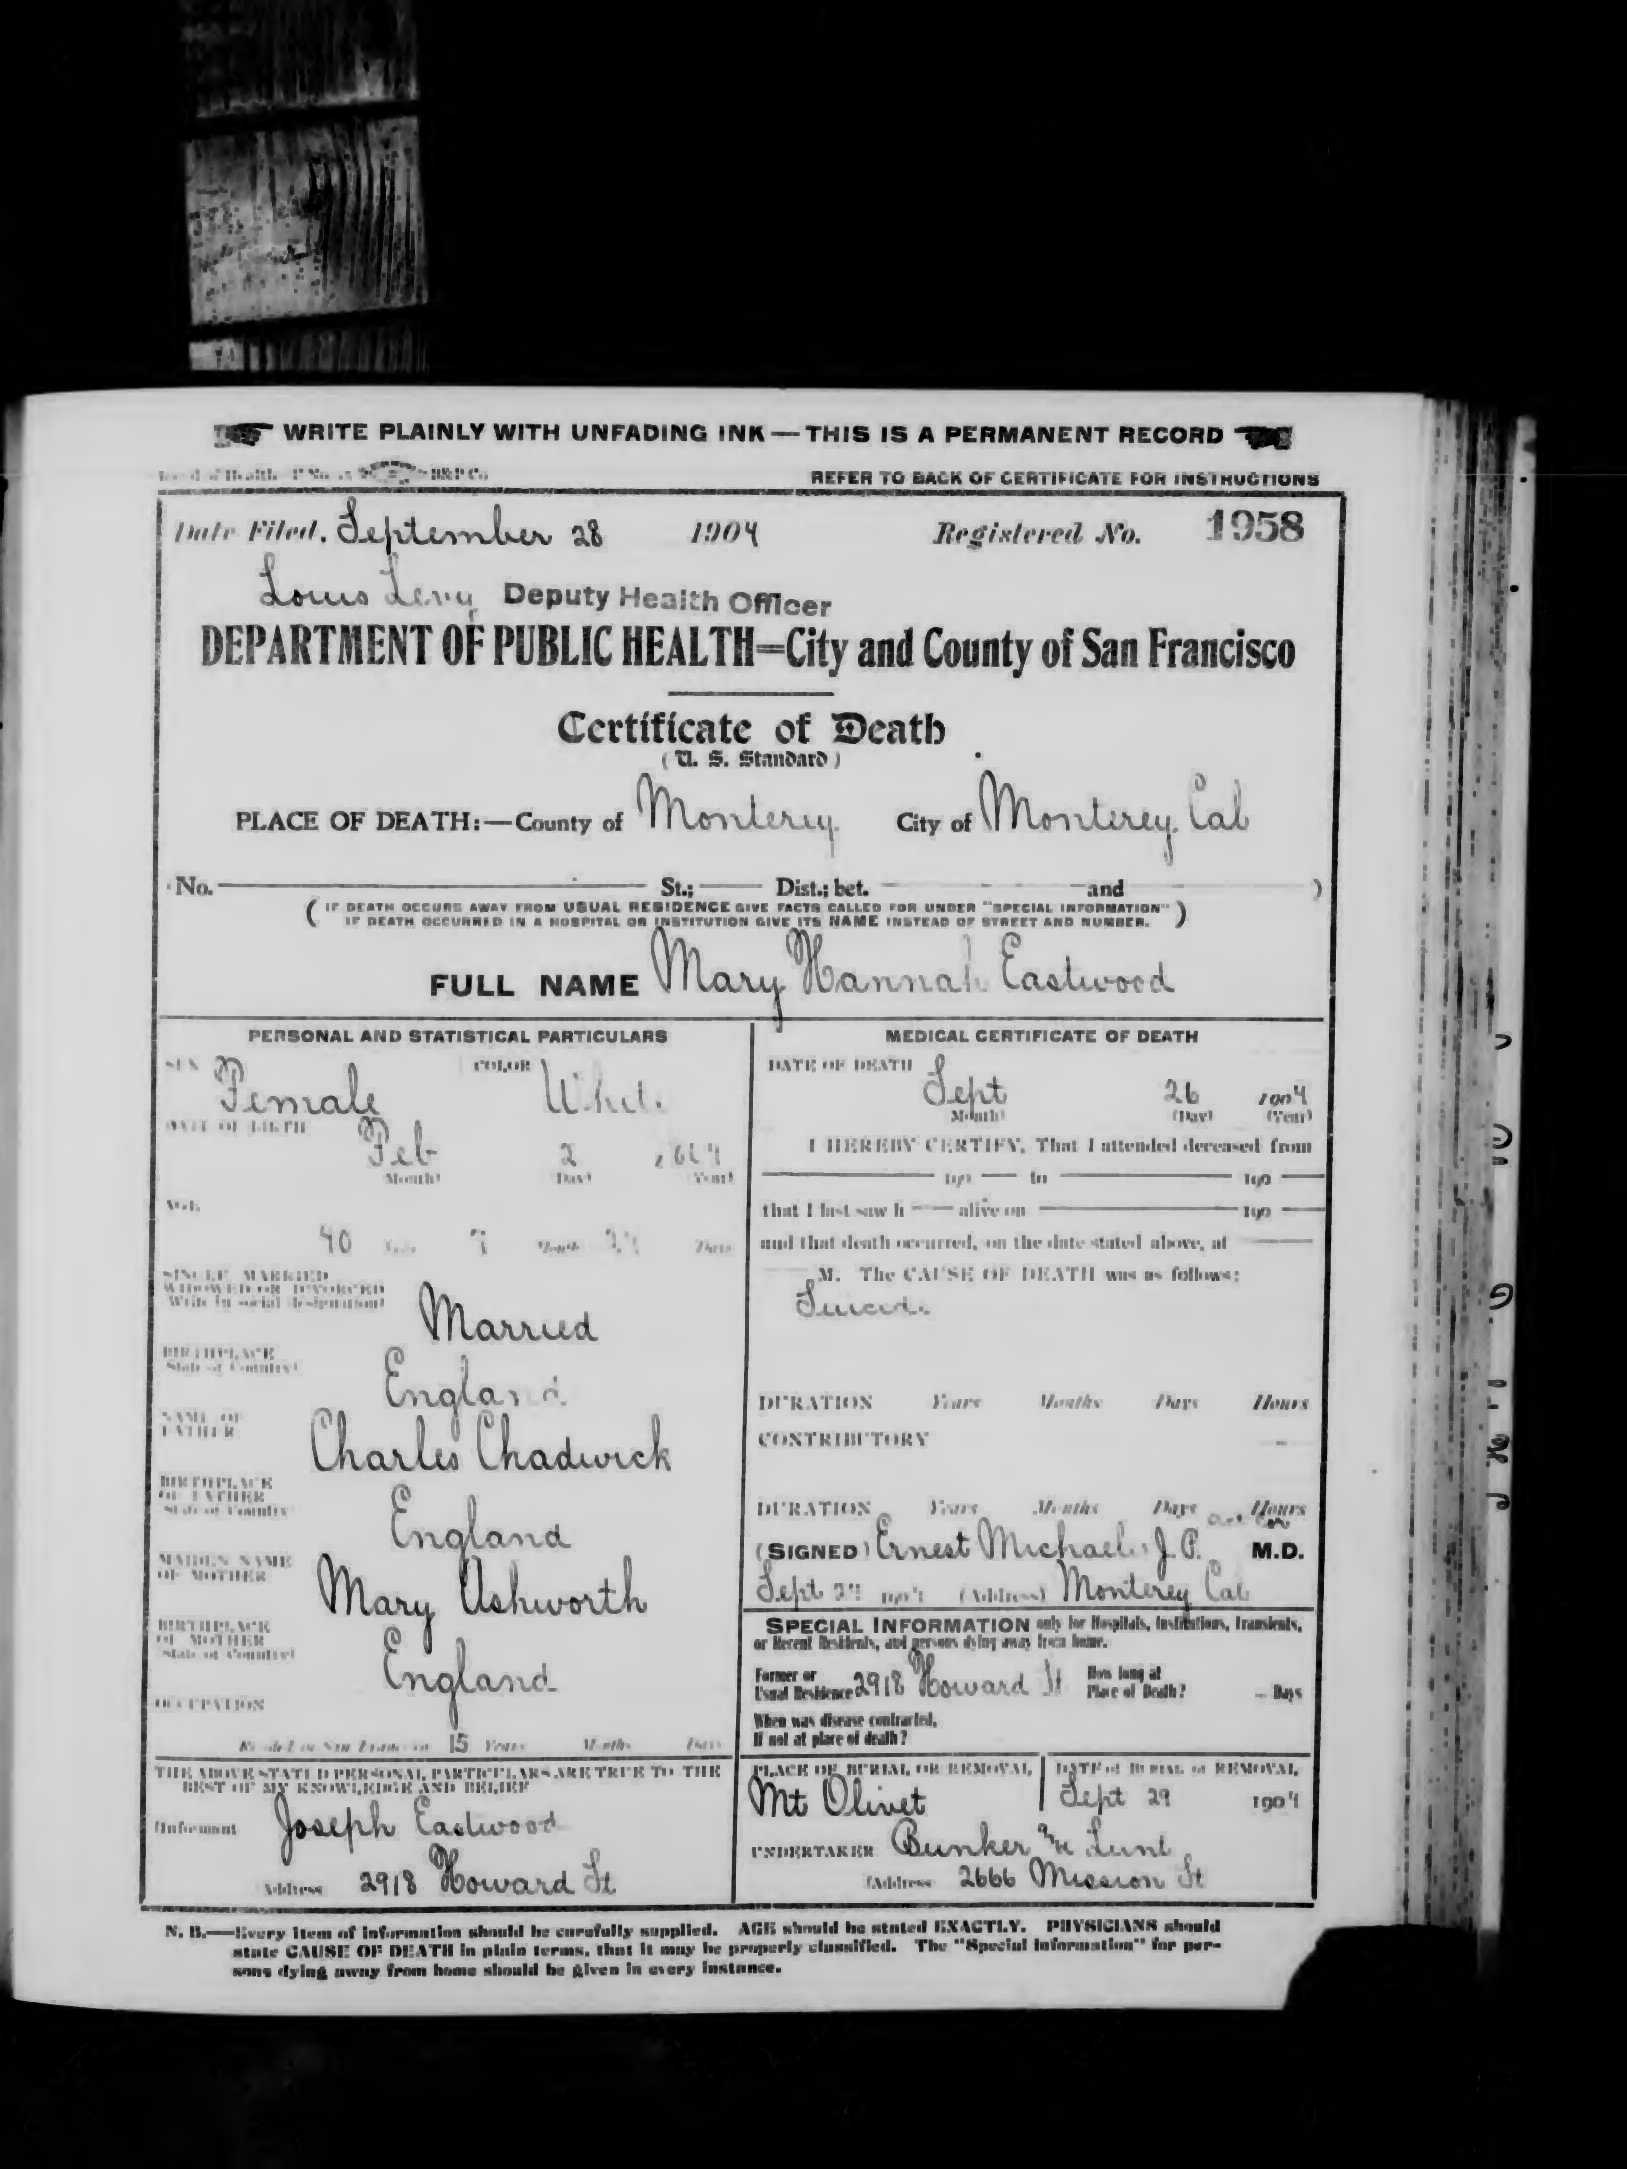 WRITE PLAINLY WITH UNFADING INK — THIS IS A PERMANENT RECORD
Board of Health B&P Co
REFER TO BACK OF CERTIFICATE FOR INSTRUCTIONS
Date Filed, September 28 1904 Registered No. 1958
Louis Levy Deputy Health Officer
DEPARTMENT OF PUBLIC HEALTH=City and County of San Francisco
Certificate of Death
(U. S. Standard)
PLACE OF DEATH:—County of Monterey City of Monterey, Cal
No. St.; Dist.; bet. and )
(IF DEATH OCCURS AWAY FROM USUAL RESIDENCE GIVE FACTS CALLED FOR UNDER "SPECIAL INFORMATION"
IF DEATH OCCURRED IN A HOSPITAL OR INSTITUTION GIVE ITS NAME INSTEAD OF STREET AND NUMBER.)
FULL NAME Mary Hannah Eastwood
PERSONAL AND STATISTICAL PARTICULARS
SEX Female COLOR White
DATE OF BIRTH
Feb 2
(Month) (Day) (Year)
AGE
40 Years 7 Months Days
SINGLE MARRIED
WIDOWED OR DIVORCED
(Write in social designation)
Married
BIRTHPLACE
(State or Country)
England
NAME OF
FATHER
Charles Chadwick
BIRTHPLACE
OF FATHER
(State or Country)
England
MAIDEN NAME
OF MOTHER
Mary Ashworth
BIRTHPLACE
OF MOTHER
(State or Country)
England
OCCUPATION
Resided in San Francisco 15 Years Months Days
THE ABOVE STATED PERSONAL PARTICULARS ARE TRUE TO THE
BEST OF MY KNOWLEDGE AND BELIEF
(Informant Joseph Eastwood
Address 2918 Howard St
MEDICAL CERTIFICATE OF DEATH
DATE OF DEATH
Sept 26 1904
(Month) (Day) (Year)
I HEREBY CERTIFY, That I attended deceased from
190 to 190
that I last saw h alive on 190
and that death occurred, on the date stated above, at
M. The CAUSE OF DEATH was as follows:
Suicide
DURATION Years Months Days Hours
CONTRIBUTORY
DURATION Years Months Days Hours
(SIGNED) Ernest Michaelis J.P. M.D.
Sept 27 1904 (Address) Monterey Cal
SPECIAL INFORMATION only for Hospitals, Institutions, Transients,
or Recent Residents, and persons dying away from home.
Former or
Usual Residence 2918 Howard St
How long at
Place of Death? Days
When was disease contracted,
If not at place of death?
PLACE OF BURIAL OR REMOVAL
Mt Olivet
DATE of BURIAL or REMOVAL
Sept 29 1904
UNDERTAKER Bunker & Lunt
(Address 2666 Mission St
N. B.—Every item of information should be carefully supplied. AGE should be stated EXACTLY. PHYSICIANS should
state CAUSE OF DEATH in plain terms, that it may be properly classified. The "Special Information" for per-
sons dying away from home should be given in every instance.